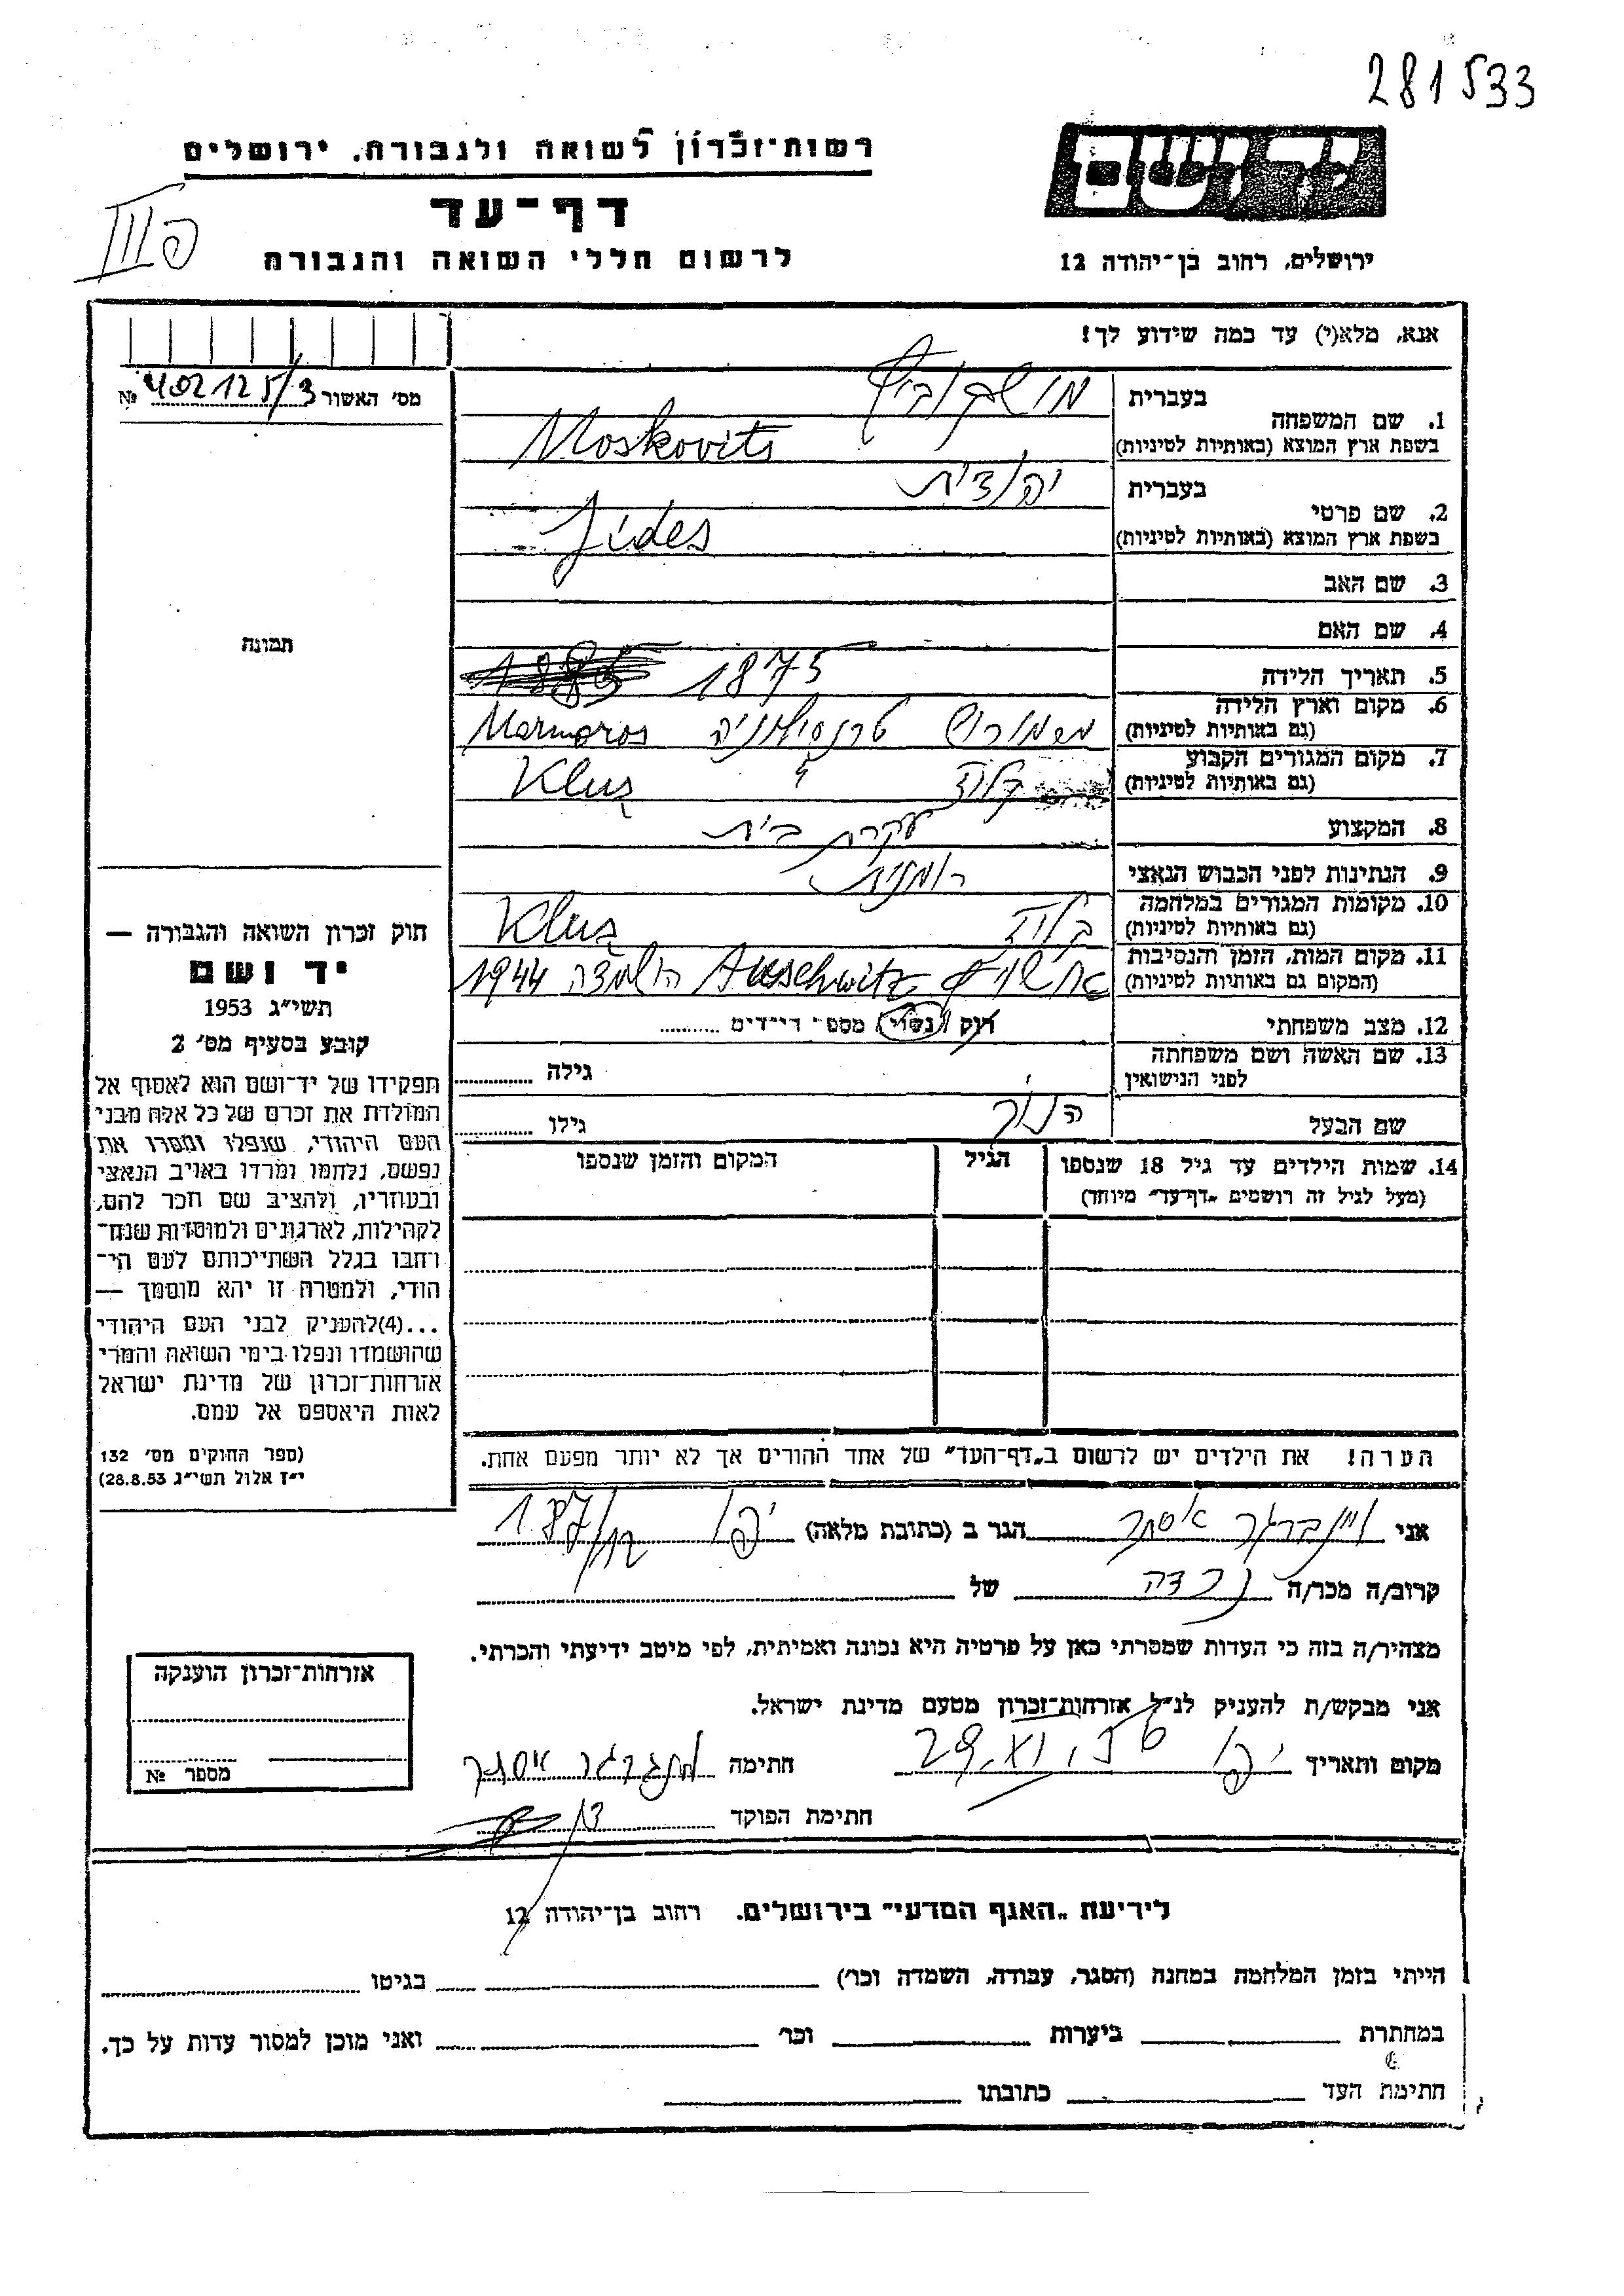 281533
ידושם
רשות־זכרון לשואה ולגבורה, ירושלים
דף־עד
לרשום חללי השואה והגבורה
ירושלים, רחוב בן־יהודה 12
אנא, מלא(י) עד כמה שידוע לך!
מס׳ האשור 402125/3 №
תמונה
1. שם המשפחה
בעברית מושקוביץ
בשפת ארץ המוצא (באותיות לטיניות) Moskovits
2. שם פרטי
בעברית יהודית
בשפת ארץ המוצא (באותיות לטיניות) Jides
3. שם האב
4. שם האם
5. תאריך הלידה 1875
6. מקום וארץ הלידה
(גם באותיות לטיניות) טרנסילווניה Marmaros
7. מקום המגורים הקבוע
(גם באותיות לטיניות) קלוז Kluj
8. המקצוע עקרת בית
9. הנתינות לפני הכבוש הנאצי רומנית
10. מקומות המגורים במלחמה
(גם באותיות לטיניות) קלוז Kluj
11. מקום המות, הזמן והנסיבות
(המקום גם באותיות לטיניות) אושויץ Auschwitz הושמדה 1944
12. מצב משפחתי רוק / נשוי / מספר ילדים
13. שם האשה ושם משפחתה
לפני הנישואין גילה
שם הבעל גילו
14. שמות הילדים עד גיל 18 שנספו
(מעל לגיל זה רושמים „דף־עד״ מיוחד)
הגיל
המקום והזמן שנספו
הערה! את הילדים יש לרשום ב„דף־העד״ של אחד ההורים אך לא יותר מפעם אחת.
חוק זכרון השואה והגבורה —
יד ושם
תשי״ג 1953
קובע בסעיף מס׳ 2
תפקידו של יד־ושם הוא לאסוף אל
המולדת את זכרם של כל אלה מבני
העם היהודי, שנפלו ומסרו את
נפשם, נלחמו ומרדו באויב הנאצי
ובעוזריו, ולהציב שם וזכר להם,
לקהילות, לארגונים ולמוסדות שנח־
רבו בגלל השתייכותם לעם הי־
הודי, ולמטרה זו יהא מוסמך —
...(4)להעניק לבני העם היהודי
שהושמדו ונפלו בימי השואה והמרי
אזרחות־זכרון של מדינת ישראל
לאות היאספם אל עמם.
(ספר החוקים מס׳ 132
י״ז אלול תשי״ג 28.8.53)
אני ויינברגר אסתר הגר ב (כתובת מלאה) יפו 187
קרוב/ה מכר/ה נכדה של
מצהיר/ה בזה כי העדות שמסרתי כאן על פרטיה היא נכונה ואמיתית, לפי מיטב ידיעתי והכרתי.
אני מבקש/ת להעניק לנ״ל אזרחות־זכרון מטעם מדינת ישראל.
מקום ותאריך יפו חתימה ויינברגר אסתר
חתימת הפוקד
אזרחות־זכרון הוענקה
מספר №
לידיעת „האגף המדעי״ בירושלים, רחוב בן־יהודה 12
הייתי בזמן המלחמה במחנה (הסגר, עבודה, השמדה וכו׳) בגיטו
במחתרת ביערות וכו׳ ואני מוכן למסור עדות על כך.
חתימת העד כתובתו